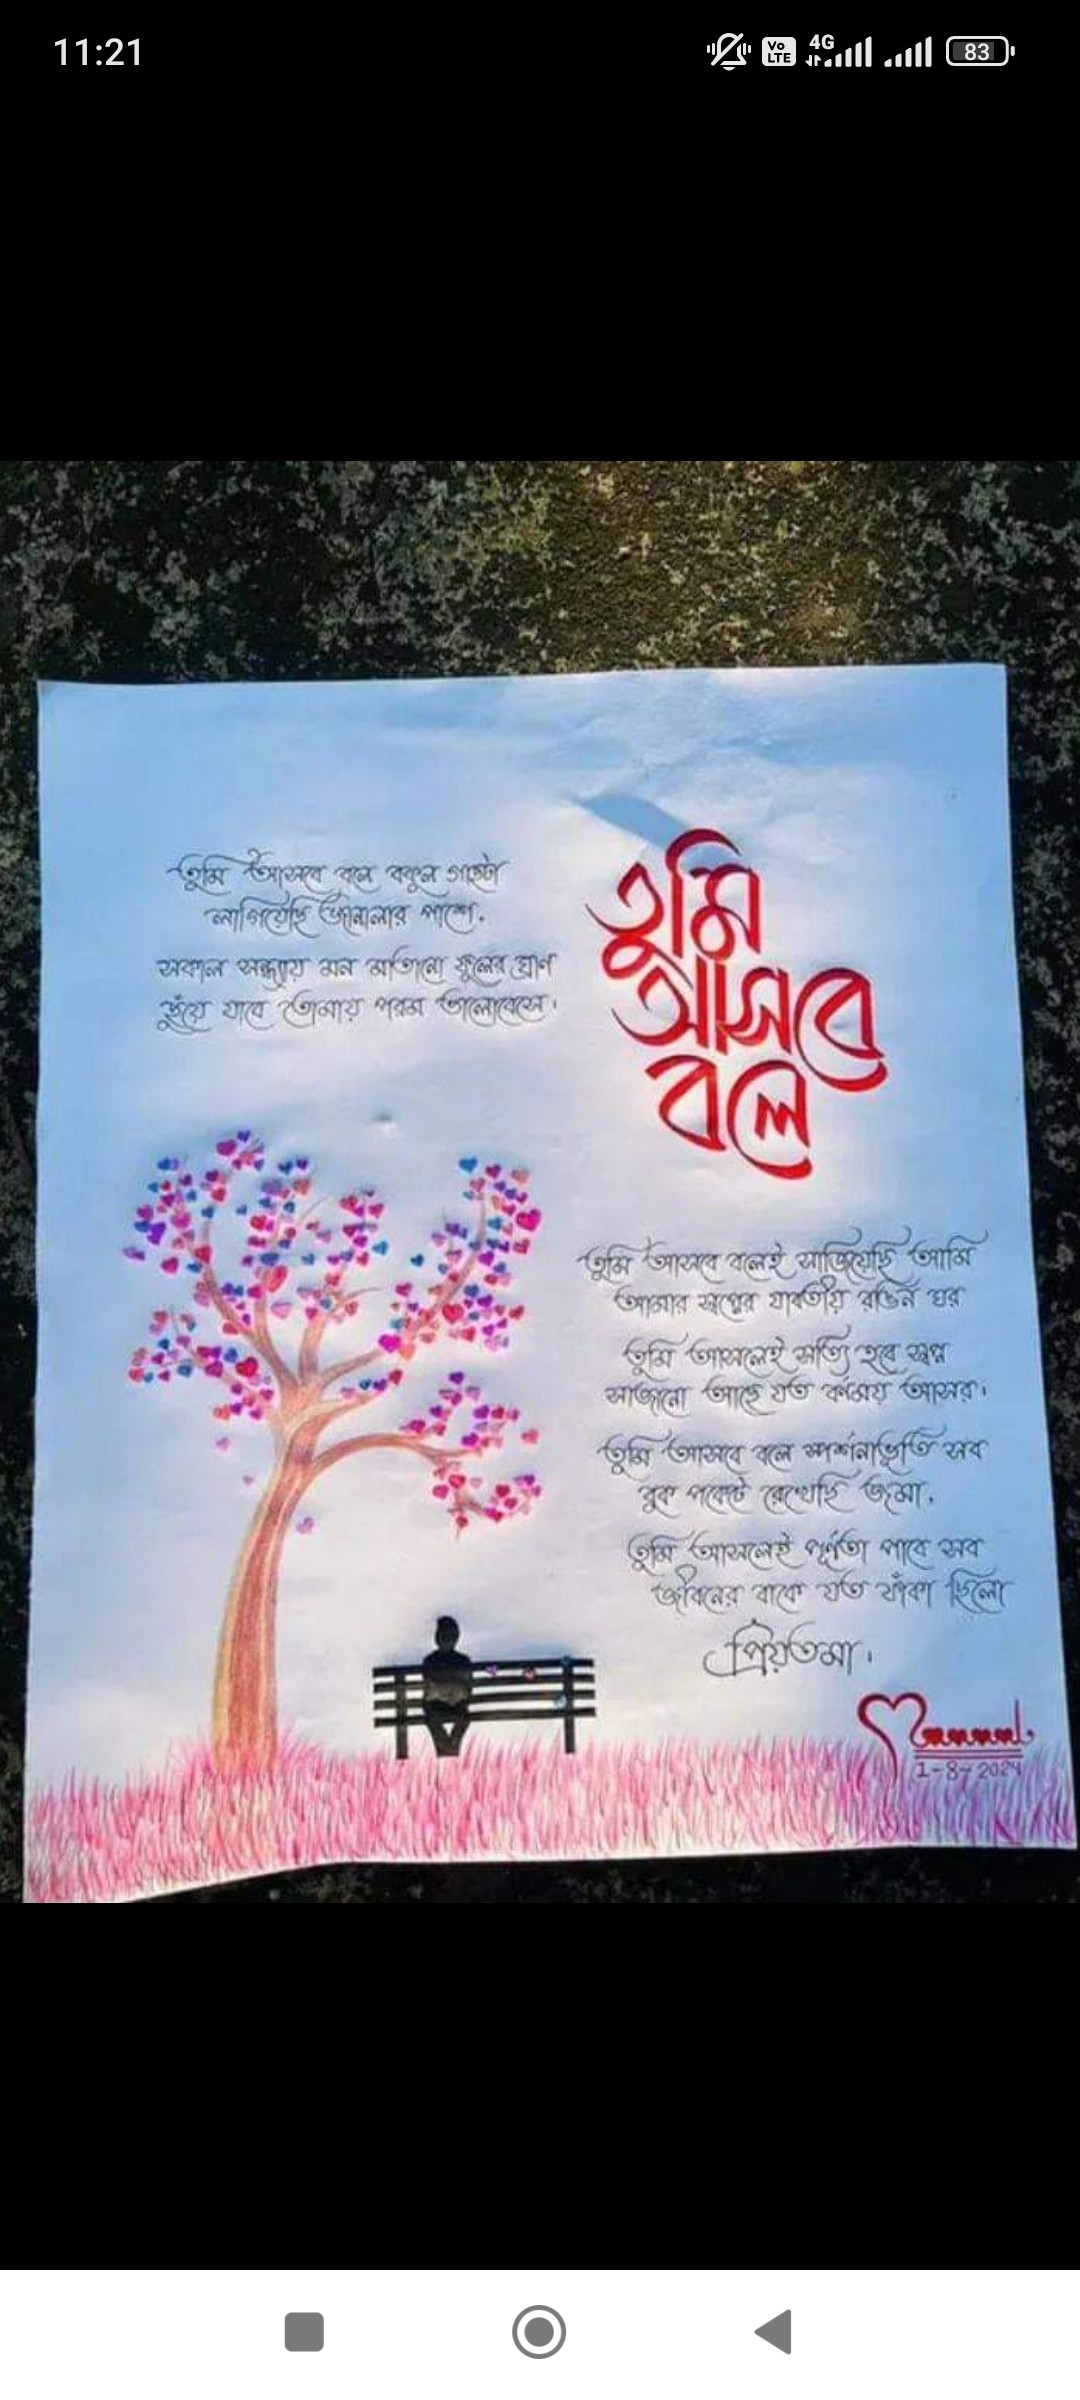 11:21
Vo LTE 4G 83
তুমি আসবে বলে বকুল গাছটা
লাগিয়েছি জানালার পাশে.
সকাল সন্ধ্যায় মন মাতানো ফুলের ঘ্রাণ
ছুঁয়ে যাবে তোমায় পরম ভালোবেসে।
তুমি
আসবে
বলে
তুমি আসবে বলেই সাজিয়েছি আমি
আমার স্বপ্নের যাবতীয় রঙিন ঘর
তুমি আসলেই সত্যি হবে স্বপ্ন
সাজানো আছে যত বর্ণময় আসর।
তুমি আসবে বলে স্পর্শনাভূতি সব
বুক পকেটে রেখেছি জমা.
তুমি আসলেই পূর্ণতা পাবে সব
জীবনের বাকে যত ফাঁকা ছিলো
প্রিয়তমা।
1-8-2024